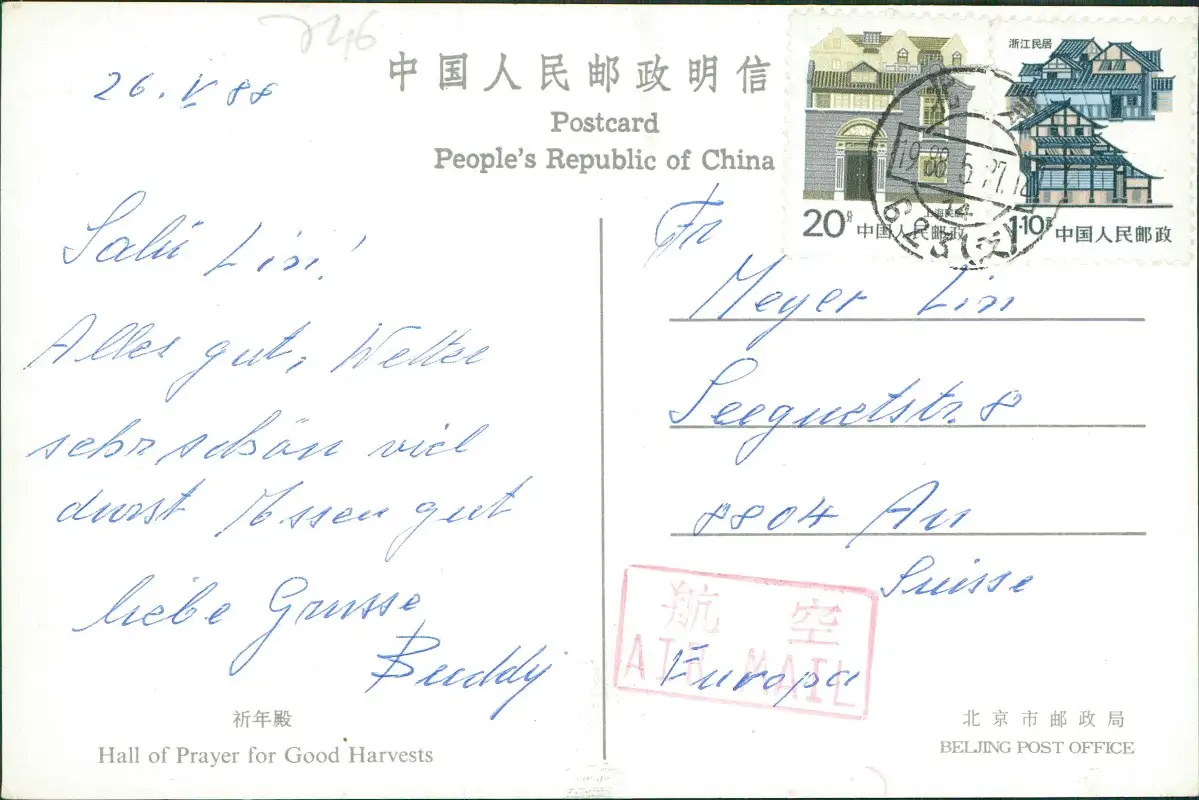 746
26. V 88
中国人民邮政明信
Postcard
People's Republic of China
Salü Lisi!
Alles gut, Wetter
sehr schön viel
durst Essen gut
liebe Grüsse
Buddy
祈年殿
Hall of Prayer for Good Harvests
上海民居
20分 中国人民邮政
浙江民居
1.10元 中国人民邮政
北京
1988.5.27.18
14
623(支)
Fr
Meyer Lisi
Seegutstr. 8
8804 Au
Suisse
Europa
航空
AIR MAIL
北京市邮政局
BEIJING POST OFFICE